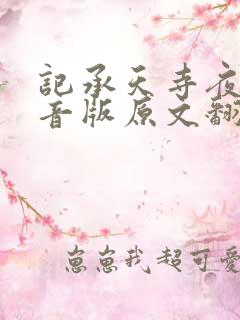 記承天寺夜
音版原文翻
崽崽我超可愛